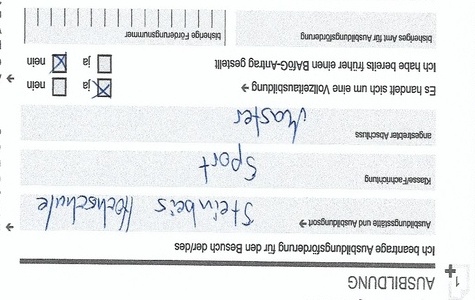 1 AUSBILDUNG
Ich beantrage Ausbildungsförderung für den Besuch der/des
Ausbildungsstätte und Ausbildungsort → Steinbeis Hochschule
Klasse/Fachrichtung Sport
angestrebter Abschluss Master
Es handelt sich um eine Vollzeitausbildung → ja nein
Ich habe bereits früher einen BAföG-Antrag gestellt ja nein
bisheriges Amt für Ausbildungsförderung bisherige Förderungsnummer